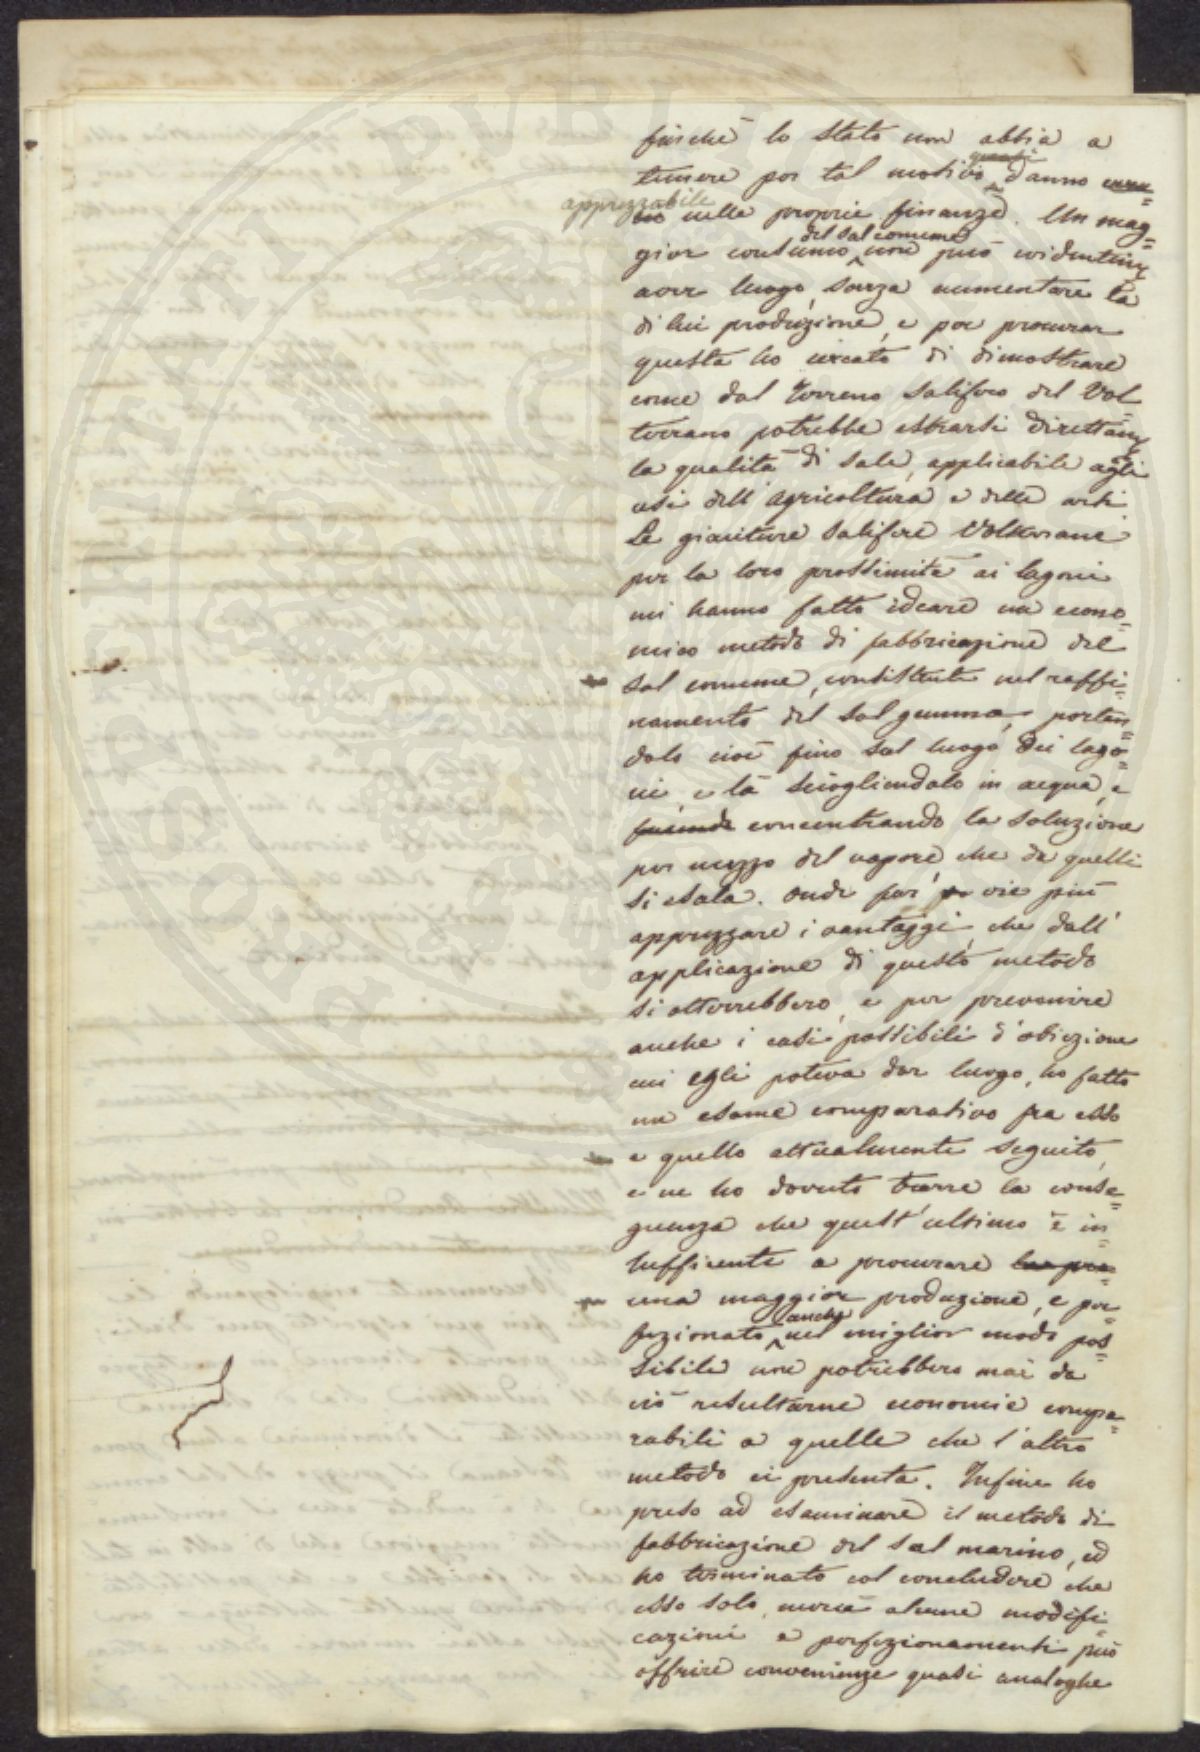 finchè lo Stato non abbia a
temere per tal motivo danno
apprezzabile nelle proprie finanze. Un mag=
gior consumo del sal comune non può evidentemte
aver luogo, senza aumentare la
di lui produzione, e per procurar
questa ho cercato di dimostrare
come dal terreno Salifero del Vol=
terrano potrebbe estrarsi direttamte
la qualità di sale, applicabile agli
usi dell'agricoltura e delle arti
Le giaciture Salifere Volterrane
per la loro prossimità ai lagoni
mi hanno fatto ideare un econo=
mico metodo di fabbricazione del
Sal comune, consistente nel raffi=
namento del Sal gemma, portan=
dolo cioè fino sul luogo dei lago=
ni, e là sciogliendolo in acqua, e
facendo concentrando la soluzione
per mezzo del vapore, che da quelli
si esala. Onde far vie più
apprezzare i vantaggi che dall'
applicazione di questo metodo
si otterrebbero, e per prevenire
anche i casi possibili d'obiezione
cui egli poteva dar luogo, ho fatto
un esame comparativo fra esso
e quello attualmente seguito,
e ne ho dovuto trarre la conse=
guenza che quest'ultimo è in=
sufficiente a procurare
una maggior produzione, e per=
fezionato anche nel miglior modo pos=
sibile non potrebbero mai da
ciò resultarne economie compa=
rabili a quelle che l'altro
metodo ci presenta. Infine ho
preso ad esaminare il metodo di
fabbricazione del Sal marino, ed
ho terminato col concludere che
esso solo, mercè alcune modifi=
cazioni e perfezionamenti può
offrire convenienze quasi analoghe